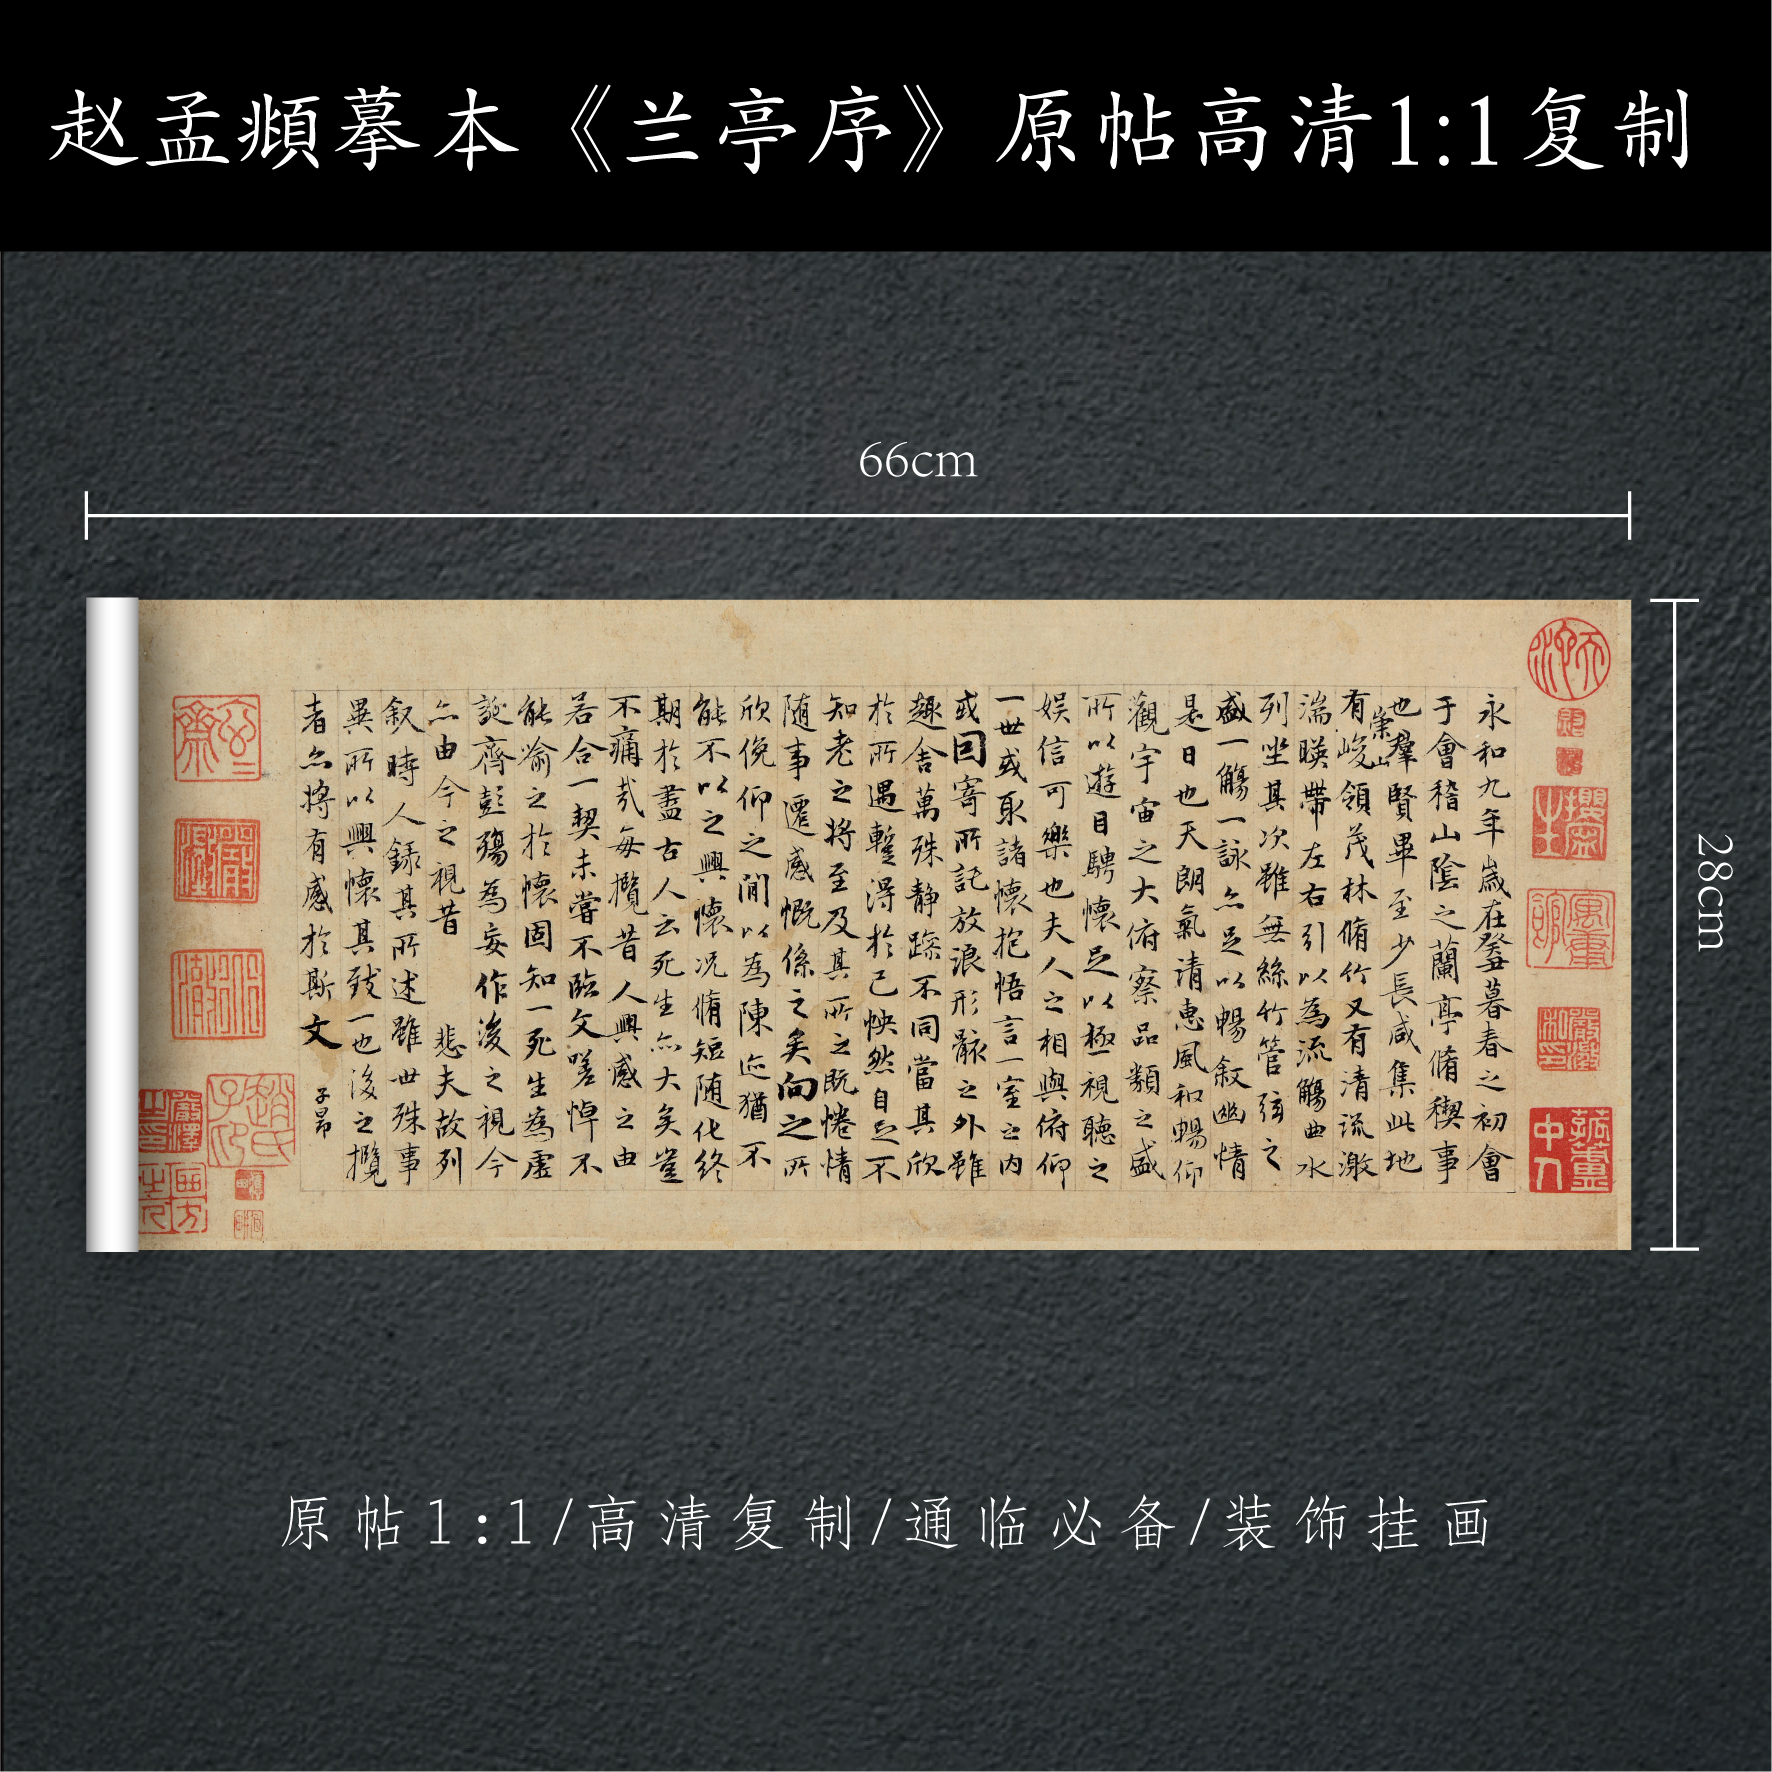 赵孟頫摹本《兰亭序》原帖高清1:1复制
66cm
28cm
永和九年歲在癸丑暮春之初會
于會稽山陰之蘭亭脩稧事
也羣賢畢至少長咸集此地
有崇山峻領茂林脩竹又有清流激
湍暎帶左右引以為流觴曲水
列坐其次雖無絲竹管弦之
盛一觴一詠亦足以暢叙幽情
是日也天朗氣清惠風和暢仰
觀宇宙之大俯察品類之盛
所以遊目騁懷足以極視聽之
娛信可樂也夫人之相與俯仰
一世或取諸懷抱悟言一室之內
或因寄所託放浪形骸之外雖
趣舍萬殊静躁不同當其欣
於所遇蹔得於己怏然自足不
知老之將至及其所之既惓情
随事遷感慨係之矣向之所
欣俛仰之閒以為陳迹猶不
能不以之興懷況脩短随化終
期於盡古人云死生亦大矣豈
不痛哉每攬昔人興感之由
若合一契未嘗不臨文嗟悼不
能喻之於懷固知一死生為虛
誕齊彭殤為妄作後之視今
亦由今之視昔 悲夫故列
叙時人錄其所述雖世殊事
異所以興懷其致一也後之攬
者亦將有感於斯文
子昂
趙氏子昂
原帖1:1/高清复制/通临必备/装饰挂画